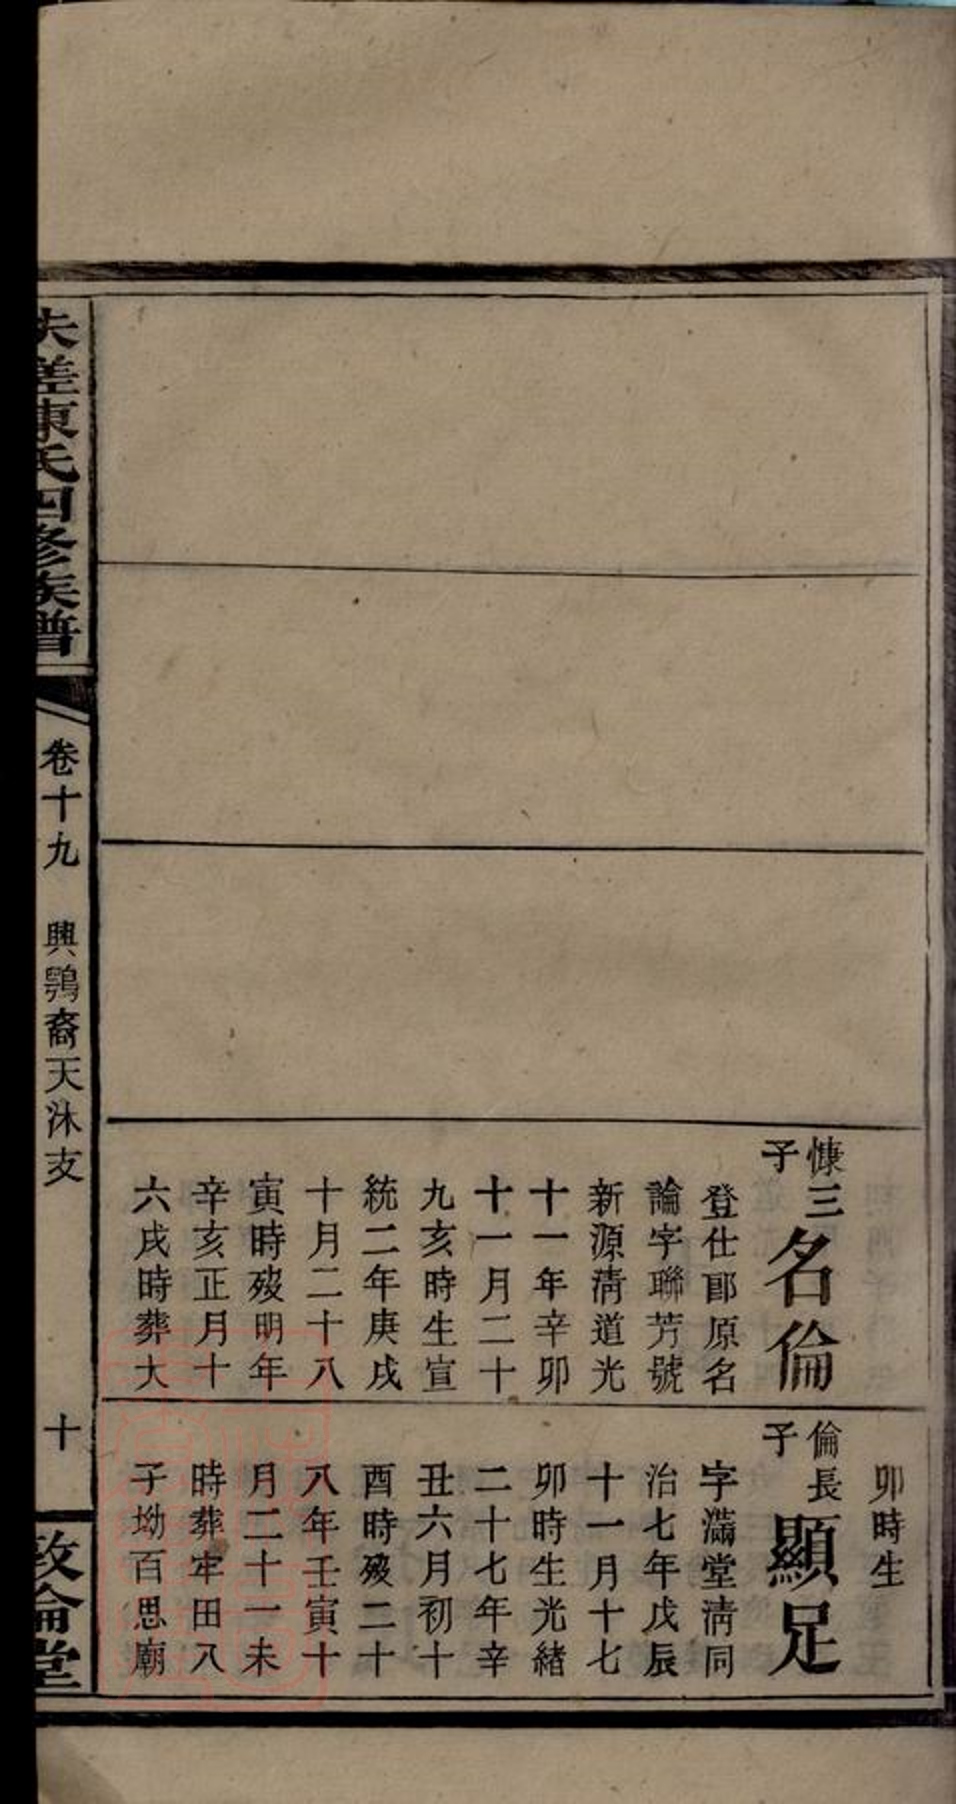 慷三子
名倫
登仕郎原名
論字聯芳號
新源清道光
十一年辛卯
十一月二十
九亥時生宣
統二年庚戌
十月二十八
寅時歿明年
辛亥正月十
六戌時葬大
卯時生
倫長子
顯足
字滿堂清同
治七年戊辰
十一月十七
卯時生光緒
二十七年辛
丑六月初十
酉時歿二十
八年壬寅十
月二十一未
時葬牢田八
子坳百思廟
夫差東氏四修族譜
卷十九
興鶚裔天沐支
十
敦倫堂